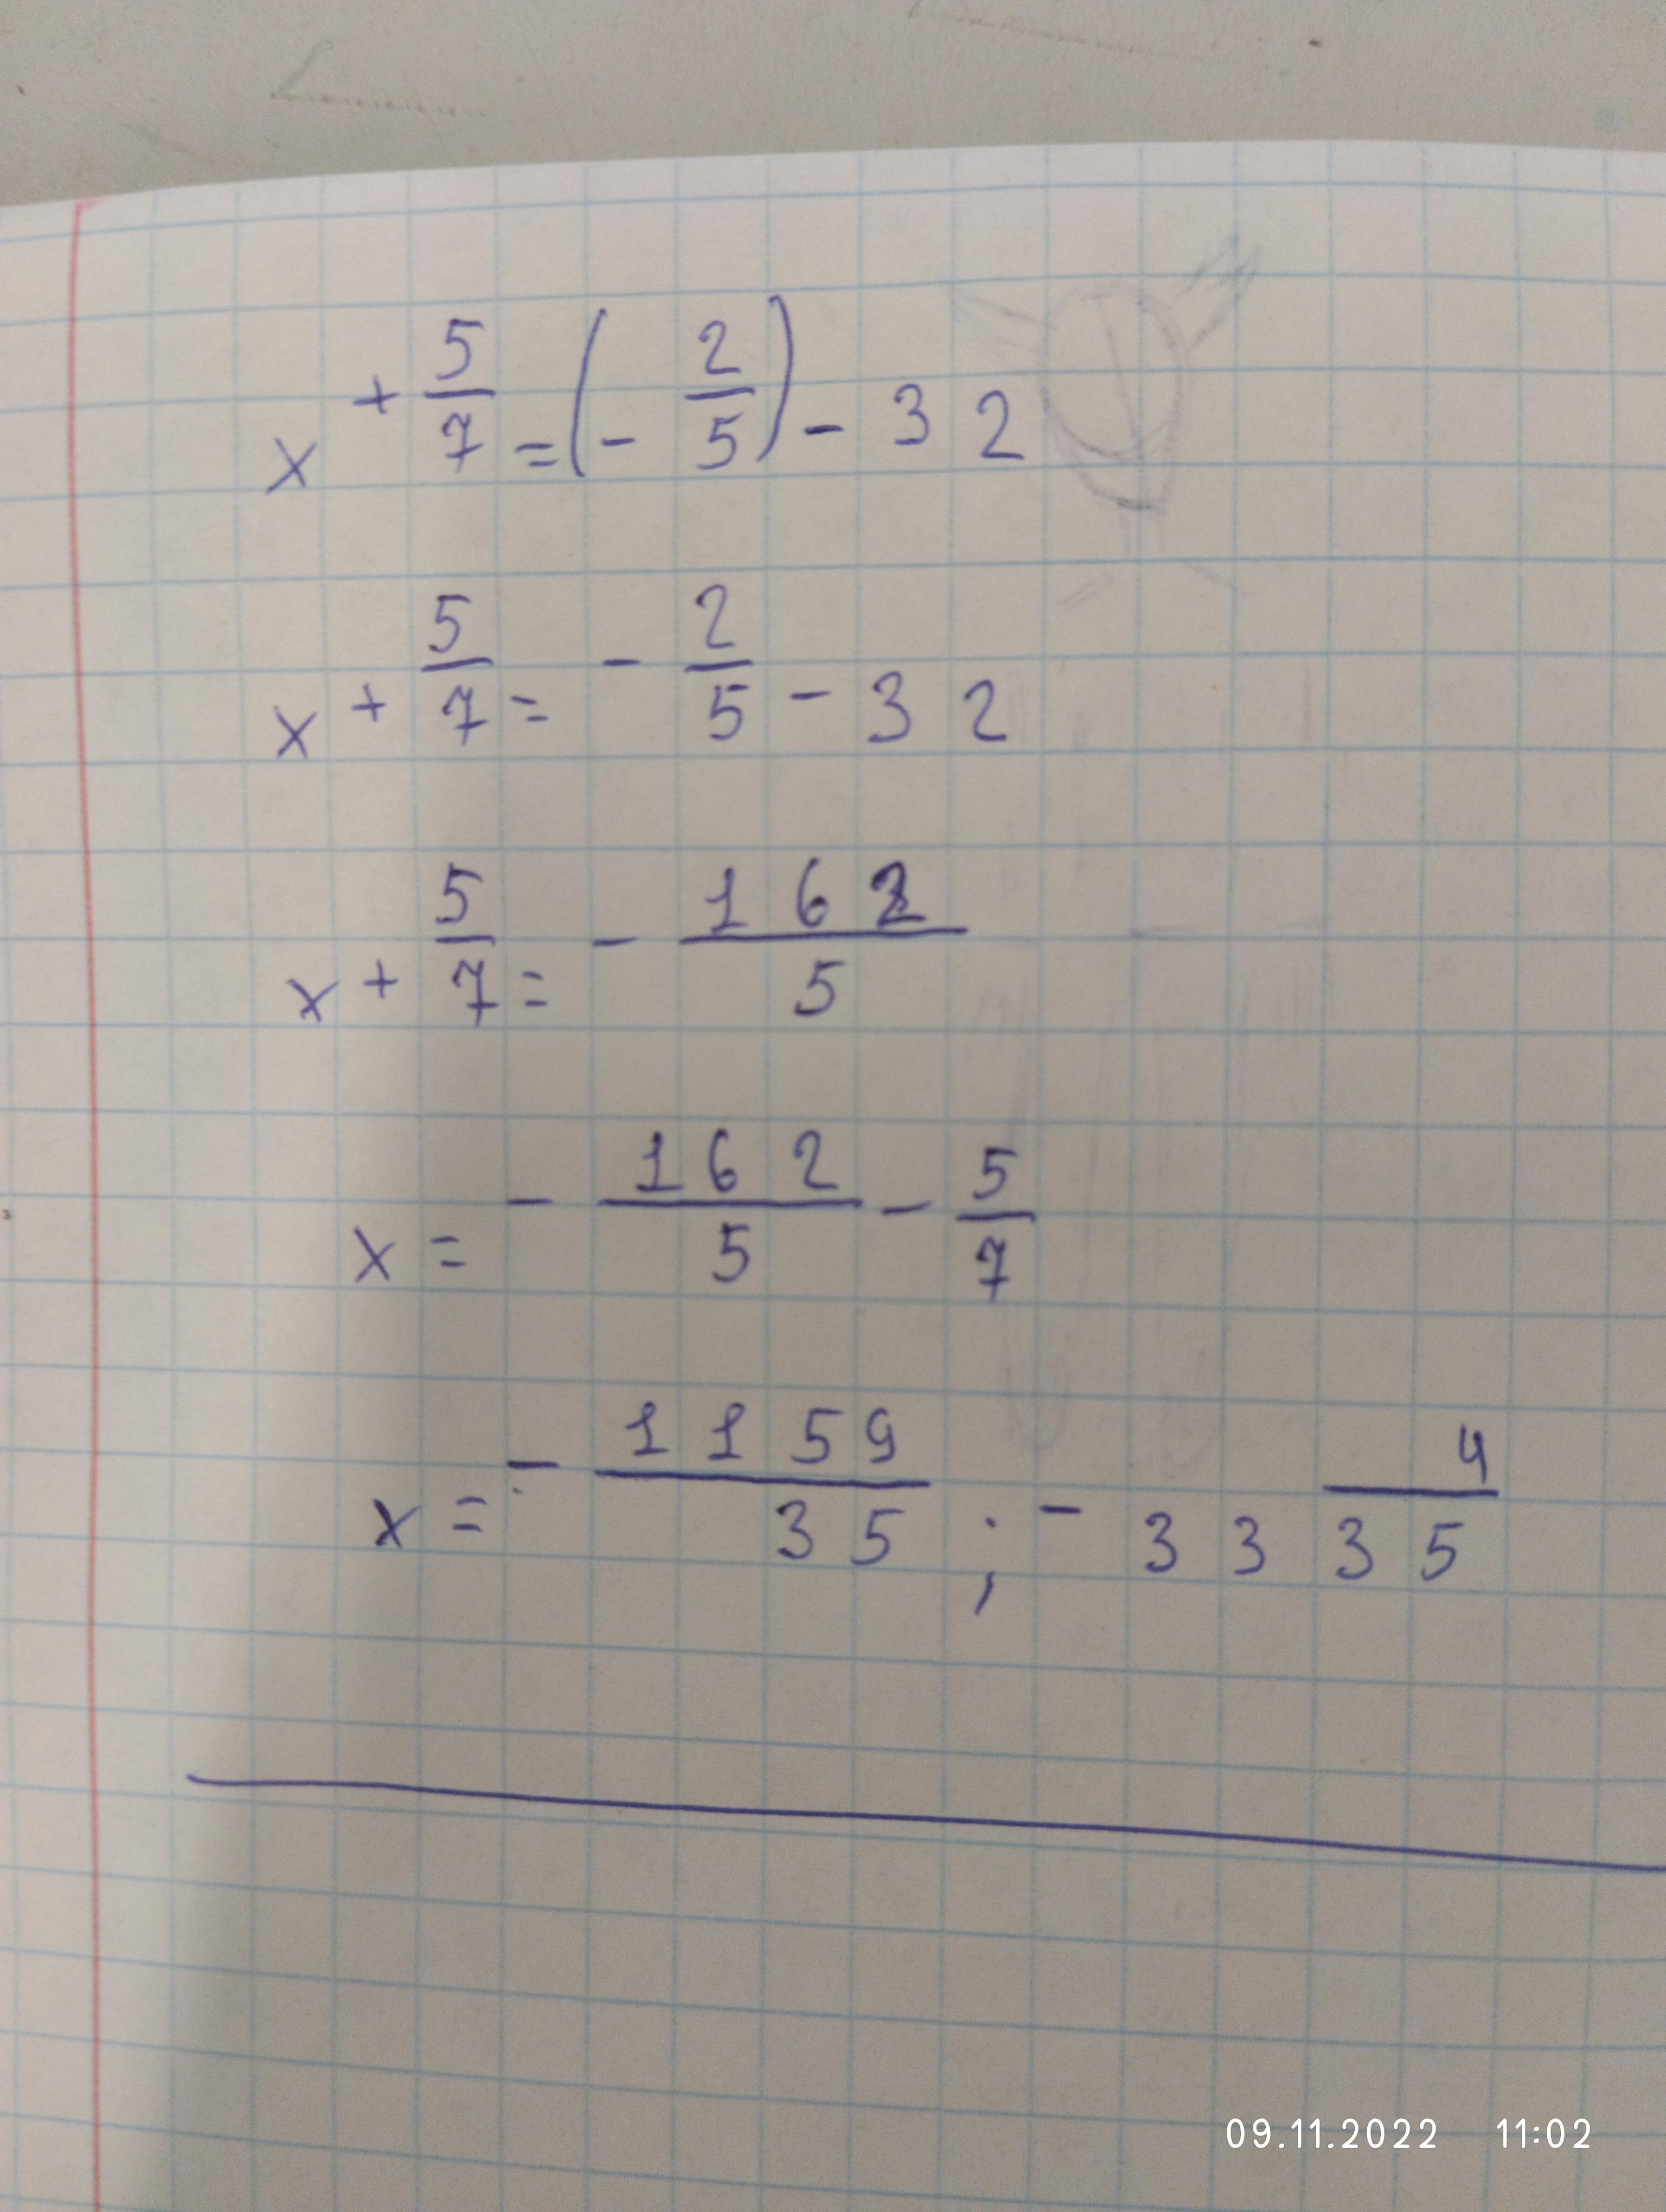 x + 5/7 = (- 2/5) - 32
x + 5/7 = - 2/5 - 32
x + 5/7 = - 162/5
x = - 162/5 - 5/7
x = - 1159/35 ; - 33 4/35
09.11.2022 11:02